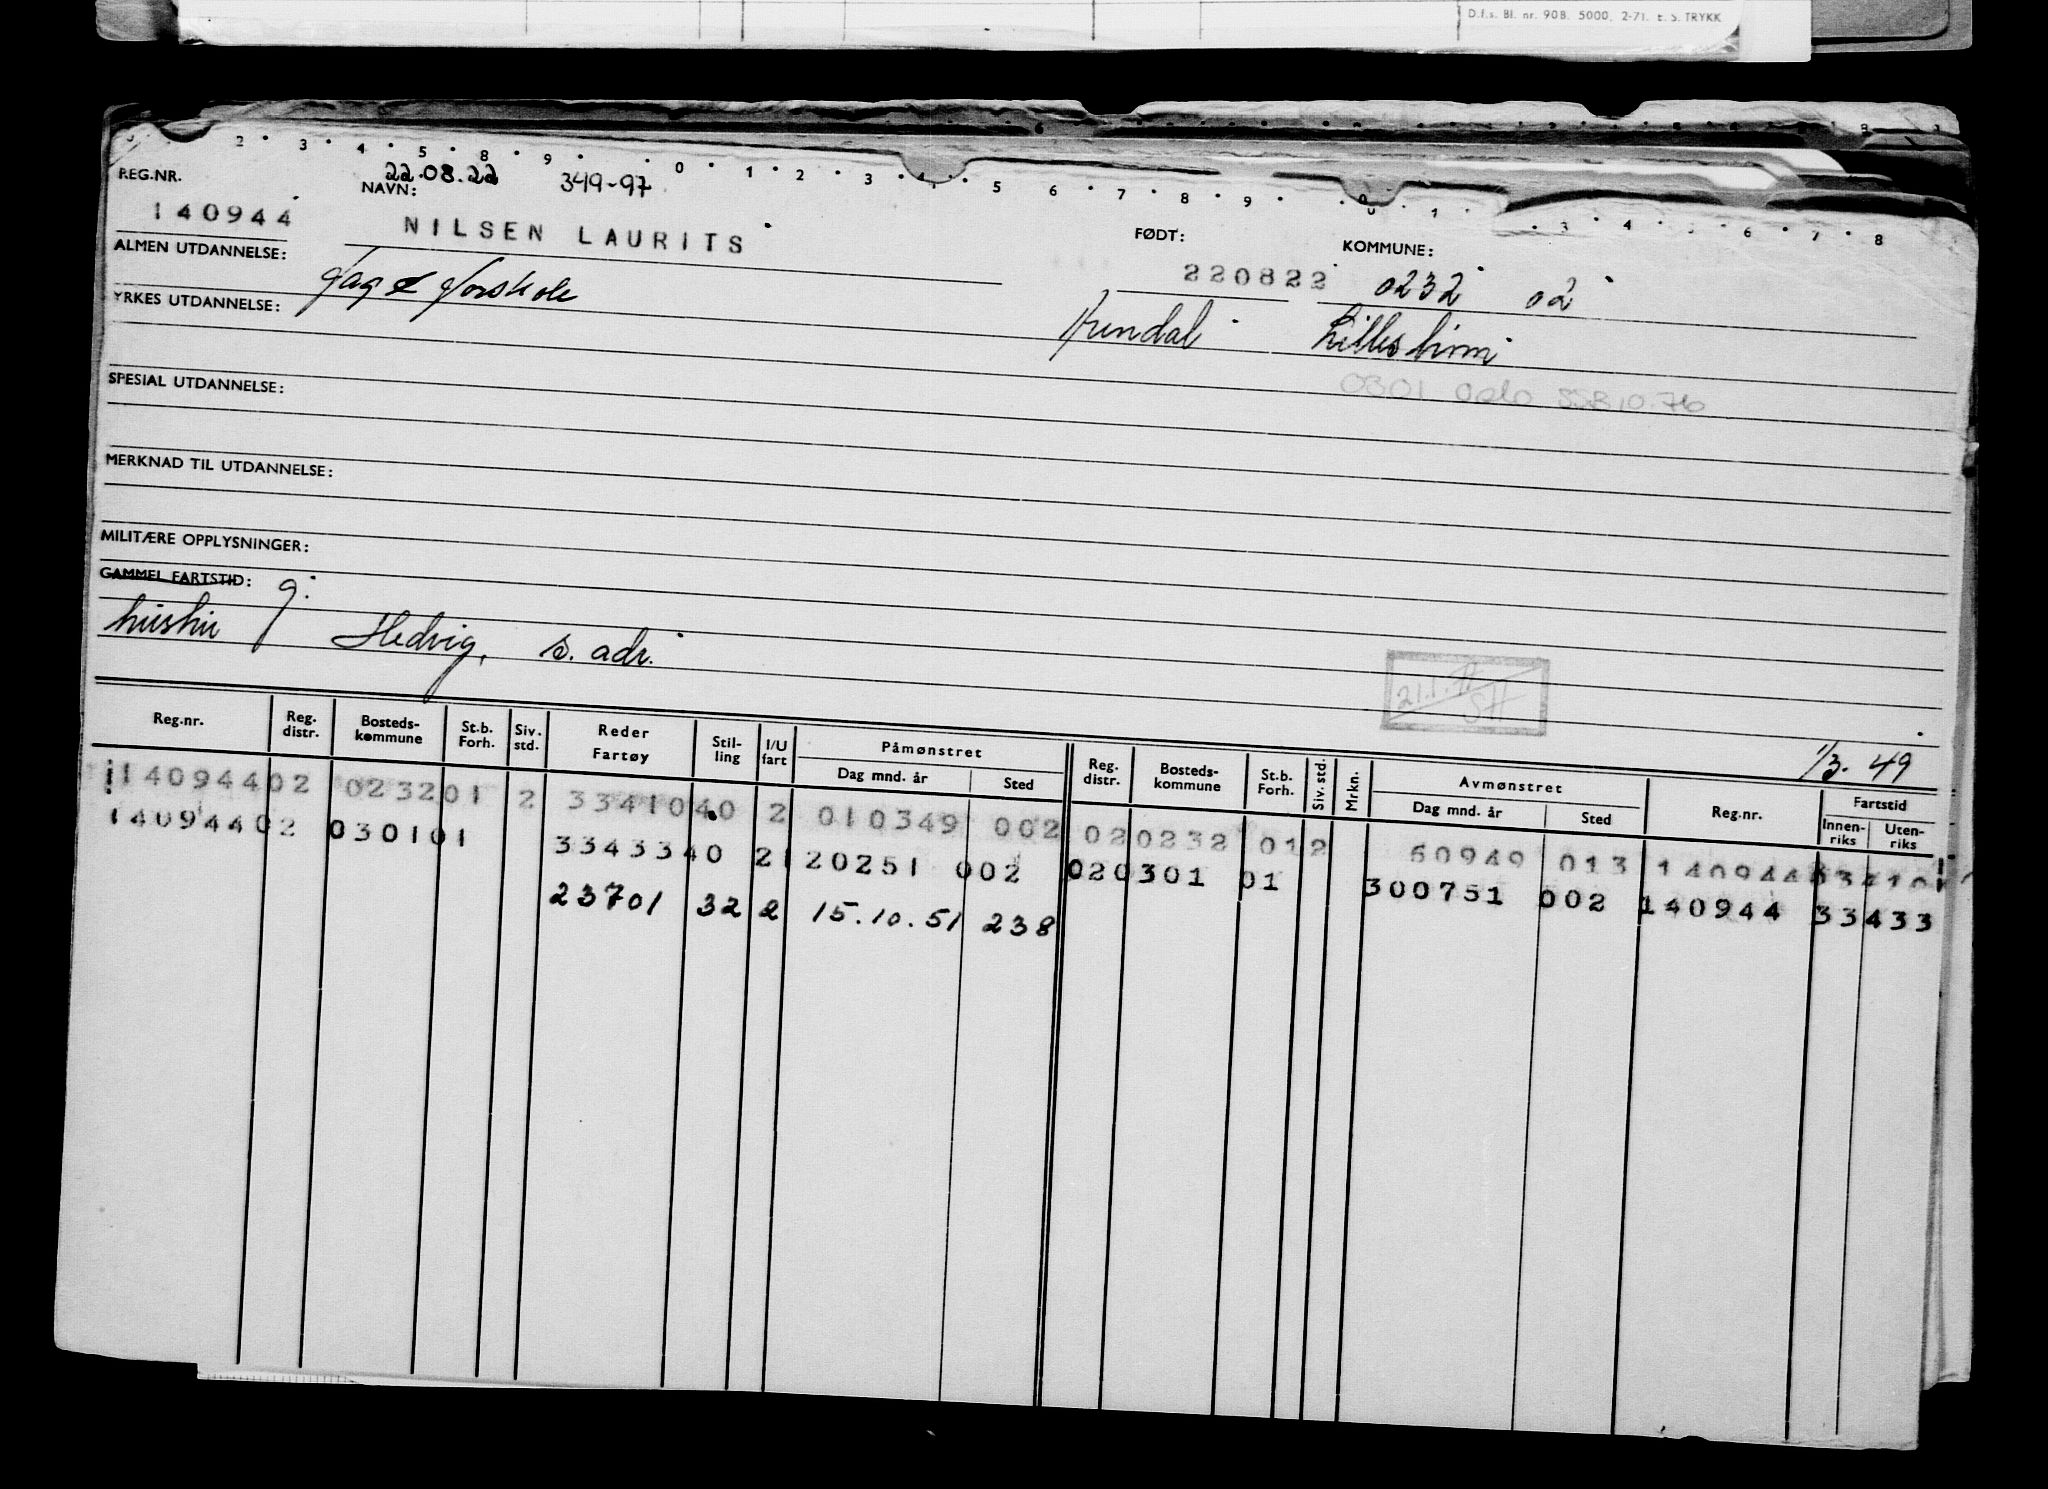 D.f.s. Bl. nr. 908. 5000, 2-71. E. S. TRYKK
2 · 3 · 4 · 5 · 8 · 9 · 0 · 1 · 2 · 3 · 4 · 5 6 · 7 · 8 · 9 · 0 · 1 · 3 · 4 · 6 · 7 · 8
REG.NR. 22.08.22 349-97
NAVN:
140944 NILSEN LAURITS FØDT: KOMMUNE:
ALMEN UTDANNELSE: 220822 0232 02
YRKES UTDANNELSE: Lillestrøm
0301 Oslo SSB 10.76
SPESIAL UTDANNELSE:
MERKNAD TIL UTDANNELSE:
MILITÆRE OPPLYSNINGER:
GAMMEL FARTSTID: g.
hustru Hedvig, s. adr.
21.1.77 SH
1/3. 49
Reg.nr. Reg. distr. Bosteds-kommune St.b. Forh. Siv. std. Reder Fartøy Stil-ling I/U fart Påmønstret Dag mnd. år Sted Reg. distr. Bosteds-kommune St.b. Forh. Siv. std. Mrkn. Avmønstret Dag mnd. år Sted Reg.nr. Fartstid Innen-riks Uten-riks
140944 02 0232 01 2 33410 40 2 010349 002 02 0232 01 2 60949 013 140944 33410
140944 02 0301 01 33433 40 2 120251 002 02 0301 01 300751 002 140944 33433
23701 32 2 15.10.51 238